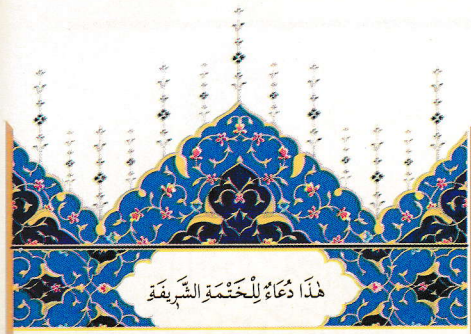 هٰذَا دُعَاءٌ لِلْخَتْمَةِ الشَّرِيفَةِ